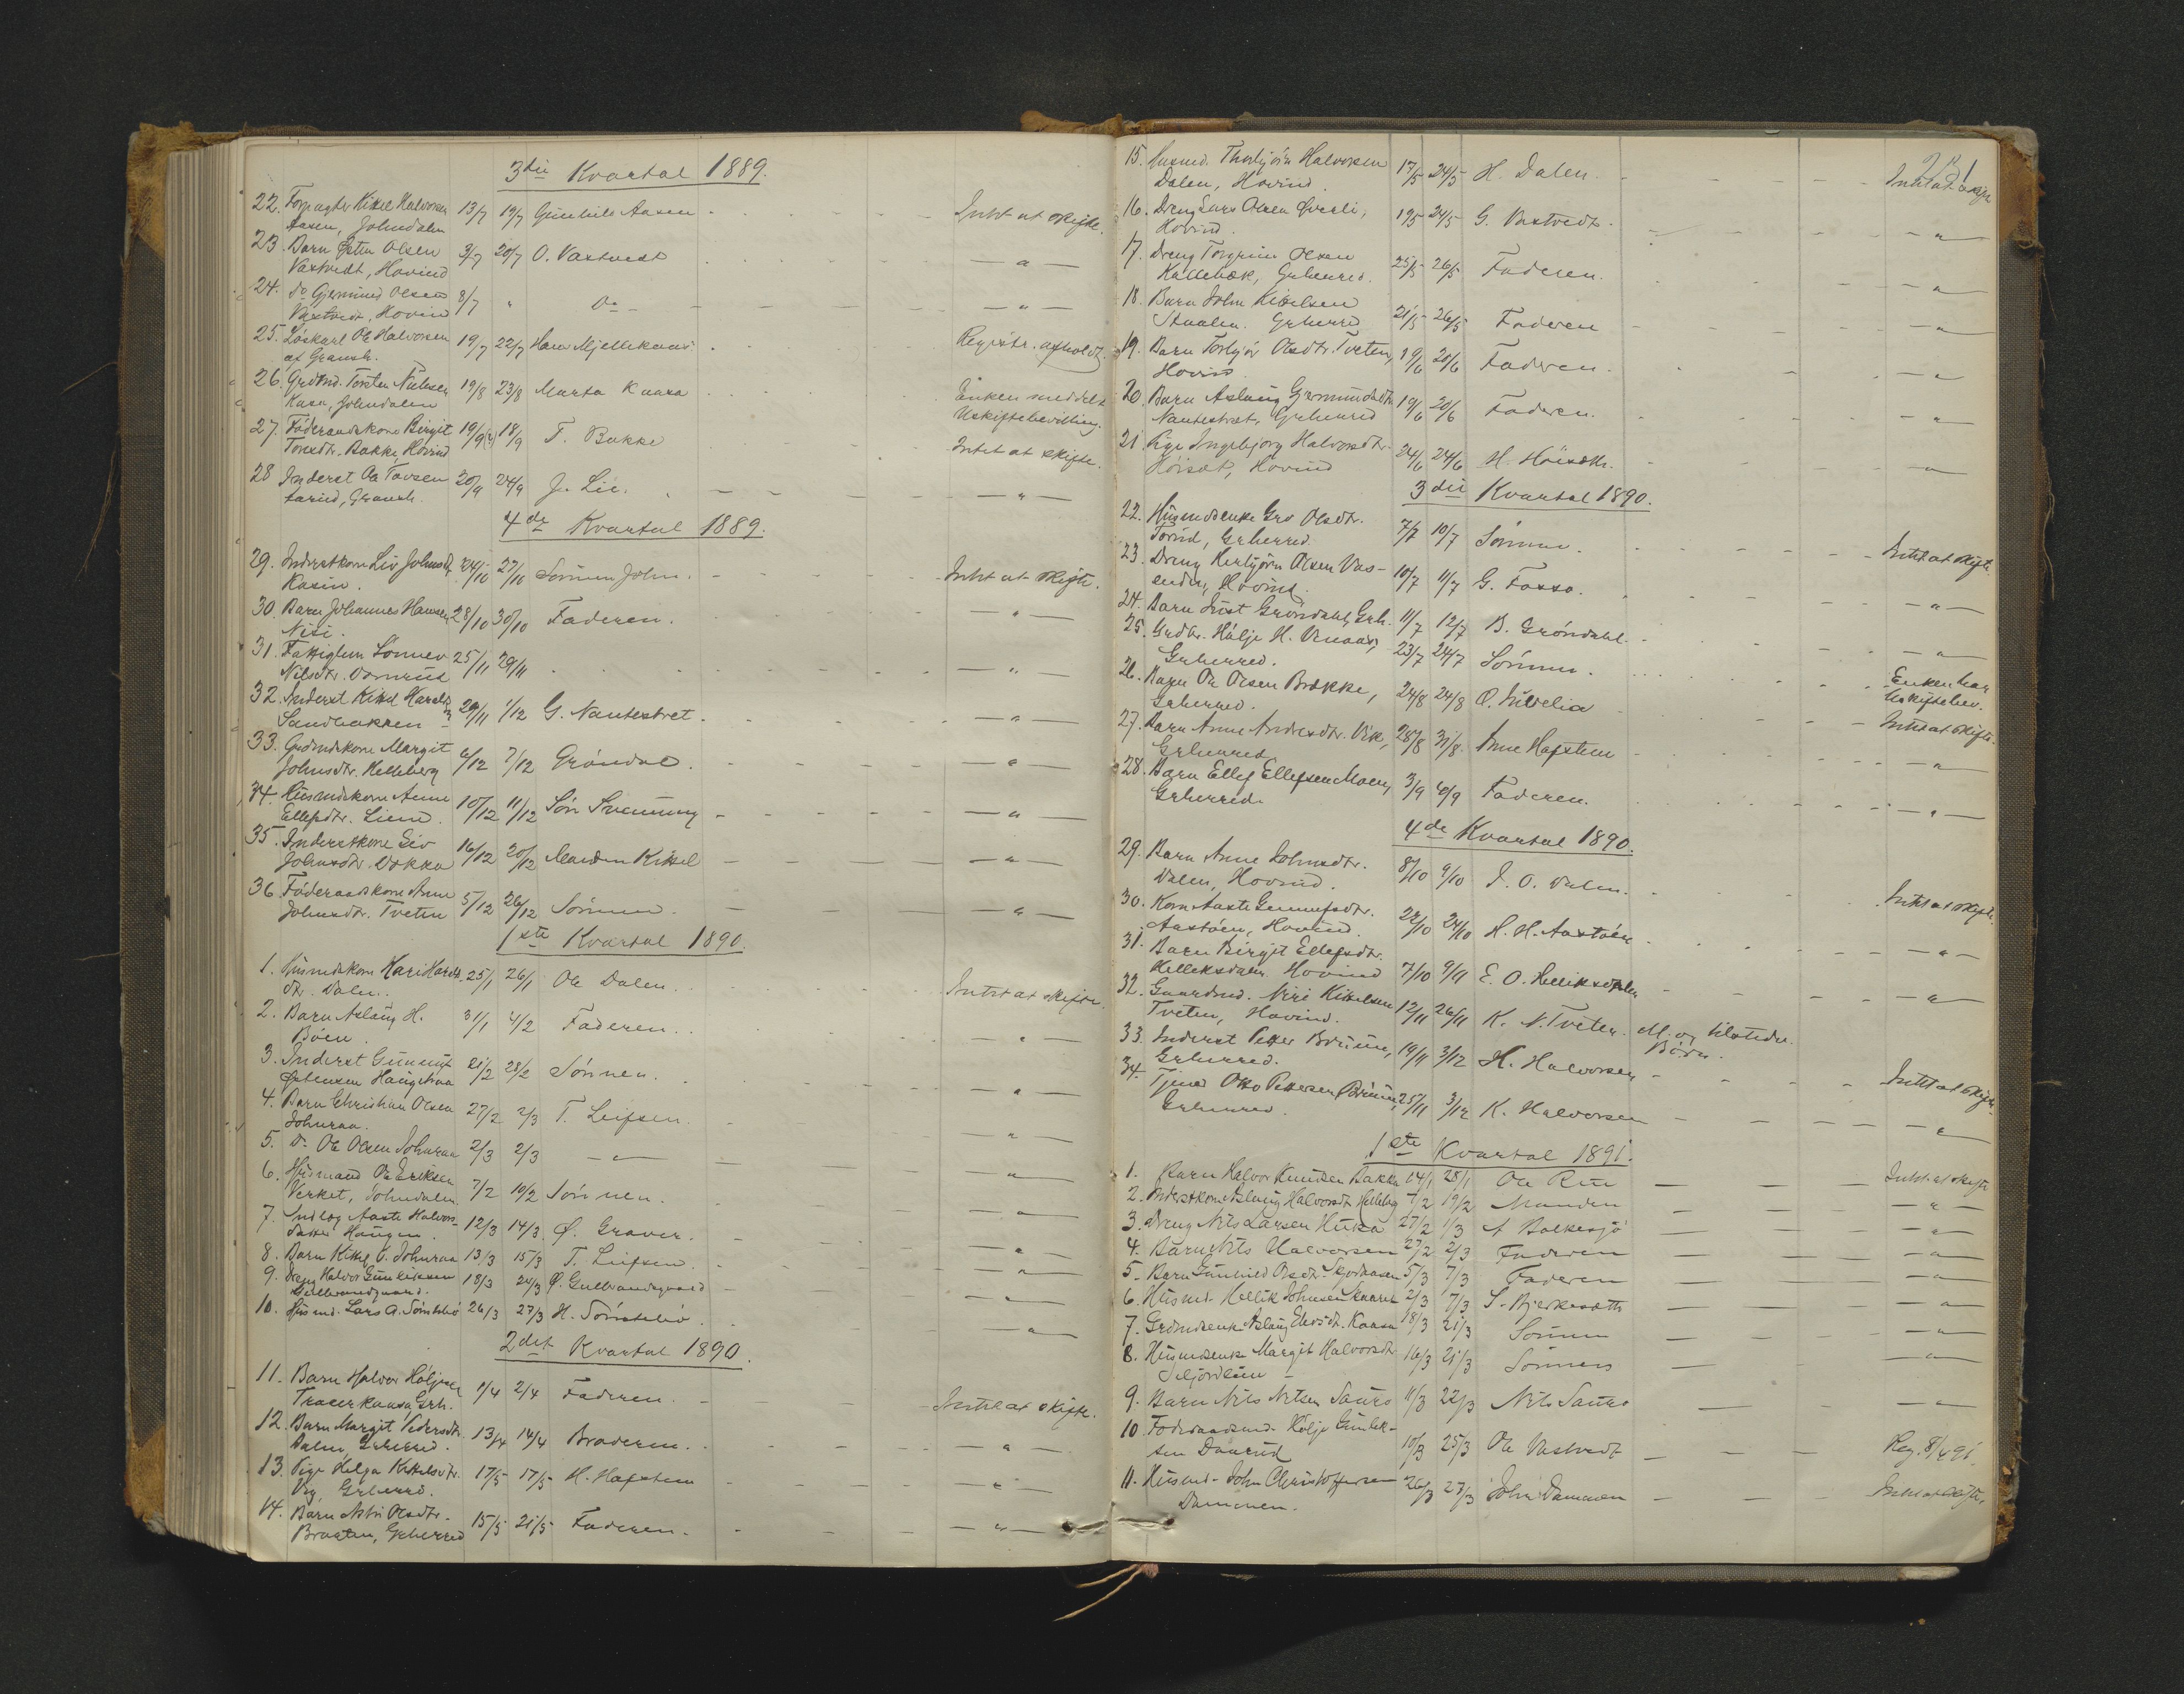 3die Kvartal 1889.
22. Forpagter Kittel Halvorsen 13/7 19/7 Gunhild Aasen Intet at skifte.
Aasen, Johndalen
23. Barn Østen Olsen 3/7 20/7 O. Vastvedt — " —
Vastvedt, Hovind
24. do Gjermund Olsen 8/7 " Do — " —
Vastvedt, Hovind
25. Løskarl Ole Halvorsen 19/7 22/7 Hans Mjellekaas Registr. afholdt.
af Gransh.
26. Grdmd. Torsten Nielsen 19/8 23/8 Marta Kaasa Enken meddelt
Kasa, Johndalen Uskiftebevilling.
27. Føderaadskone Birgit 18/9 T. Bakke Intet at skifte.
Torsdtr. Bakke, Hovind
28 Inderst Ole Tovsen 20/9 24/9 J. Lie. — " —
Gransh.
4de Kvartal 1889.
29. Inderstkone Liv Johnsdtr 24/10 27/10 Sønnen John. Intet at skifte.
Rasin.
30. Barn Johannes Hansen 28/10 30/10 Faderen. — " —
Nisi.
31. Fattiglem Sønnev 25/11 29/11 — " —
Nilsdtr.
32. Inderst Kittel 29/11 1/12 G. Nautestvet. — " —
Sandbakken
33. Grdmdskone Margit 6/12 7/12 Grøndal. — " —
Johnsdtr. Helleberg
34. Husmdskone Anne 10/12 11/12 Søn Svennung — " —
Ellefsdtr. Liend.
35. Inderstkone Liv 16/12 20/12 Manden Kittel — " —
Johnsdtr. Bakka
36. Føderaadskone Anne 5/12 26/12 Sønnen. — " —
Johnsdtr. Tveten
1ste Kvartal 1890.
1. Husmdskone Kari 25/1 26/1 Ole Dalen. Intet at skifte
dtr. Dalen.
2. Barn Aslaug H. 31/1 4/2 Faderen. — " —
Böen.
3. Inderst Gunnuf 21/2 28/2 Sønnen. — " —
Østensen
4. Barn Christian Olsen 27/2 2/3 T. Leifsen. — " —
Johnraa.
5. Do Ole Olsen Johnraa 2/3 2/3 — " — — " —
6. Husmand Ole Eriksen 7/2 10/2 Sønnen. — " —
Verket, Johndalen
7. Indlæg Aaste Halvors- 12/3 14/3 Ø. Graver. — " —
datter Haugen.
8. Barn Kittel O. Johnraa 13/3 15/3 T. Leifsen. — " —
9. Dreng Halvor Gunleiksen 18/3 20/3 Ø. Gullvandsquard — " —
10. Husmd. Lars A. 26/3 27/3 — " —
2det Kvartal 1890.
11. Barn Halvor Høljesen 1/4 2/4 Faderen. Intet at skifte.
Grh.
12. Barn Margit Pedersdtr. 13/4 14/4 Broderen. — " —
Dalen, Grherred.
13. Pige Helga Kittelsdtr. 17/5 17/5 H. Hafsten — " —
Grherred.
14. Barn Astri Olsdtr. 15/5 21/5 Faderen. — " —
Braaten, Grherred
15. Husmd. Thorbjörn Halvorsen 17/5 24/5 H. Dalen. Intet at skifte
Dalen, Hovind.
16. Dreng Lars Olsen 19/5 24/5 G. Vastvedt. — " —
Hovind.
17. Dreng Torgrim Olsen 25/5 26/5 Faderen. — " —
Kallebæk, Grherred.
18. Barn John Kittelsen 21/5 26/5 Faderen — " —
Staalen. Grherred
19. Barn Torbjör Olsdtr. Tveten, 19/6 20/6 Faderen. — " —
Hovind
20. Barn Aslaug Gjermundsdtr 19/6 20/6 Faderen. — " —
Nautestvet, Grherred
21 Pige Ingebjørg Halvorsdtr. 24/6 24/6 H. Höisæt. — " —
Höisæt, Hovind
3die Kvartal 1890.
22. Husmdsenke Gro Olsdtr. 7/7 10/7 Sønnen. Intet at skifte
Grherred.
23. Dreng Herbjörn Olsen Vas- 10/7 11/7 G. Fosso. — " —
enden, Hovind.
24. Barn Just Grøndahl, Grh. 11/7 12/7 B. Grøndahl. — " —
25. Grdbr. Hølje H. 23/7 24/7 Sønnen. Enken har
Grherred. Uskiftebev.
26. Barn Ole Olsen Brække, 24/8 24/8 Intet at skifte.
Grherred.
27. Barn Anne Andersdtr. Vik, 28/8 31/8 Anne Hafsten — " —
Grherred
28. Barn Ellef Ellefsen Moen, 3/9 Faderen. — " —
Grherred.
4de Kvartal 1890.
29. Barn Anne Johnsdtr. 8/10 9/10 J. O. Dalen. Intet at skifte.
Dalen, Hovind.
30. Kone Aaste Gunnufsdtr. 22/10 24/10 H. H. Aastøen — " —
Aastøen, Hovind.
31. Barn Birgit Ellefsdtr. 7/10 9/11 E. O. Helleksdalen — " —
Helleksdalen Hovind
32. Gaardmd. Niri Kittelsen 12/11 26/11 K. N. Tveten. M. og tilstede.
Tveten, Hovind. Børn.
33. Inderst Petter Bruun, 19/11 3/12 H. Halvorsen Intet at skifte.
Grherred.
34. Tjener Otto Pettersen Bruun, 25/11 3/12 K. Halvorsen — " —
Grherred.
1ste Kvartal 1891.
1. Barn Halvor Knudsen Bakka 14/1 25/1 Ole Rui Intet at skifte
2. Inderstkone Aslaug Halvorsdtr Helleberg 7/2 19/2 Manden — " —
3. Dreng Nils Larsen 27/2 1/3 A Bolkesjö — " —
4. Barn Nils Halvorsen 27/2 2/3 Faderen — " —
5. Barn Gunhild Olsdtr. 5/3 7/3 Faderen — " —
6. Husmd. Hellik Johnsen 2/3 7/3 S. Bjerkesæth — " —
7. Grdmdsenke Aslaug Kaasa 18/3 21/3 Sønnen — " —
8. Husmdsenke Margit Halvorsdtr 16/3 21/3 Sønnen — " —
9. Barn Nils Nilsen Sauro 11/3 22/3 Nils Sauro — " —
10 Föderaadsmd. Hølje Gunleik- 10/3 25/3 Ole Vastvedt Reg. 8/4 91.
sen
11. Husmd. John Christoffersen 26/3 27/3 John Dammen Intet at skifte,
Dammen.